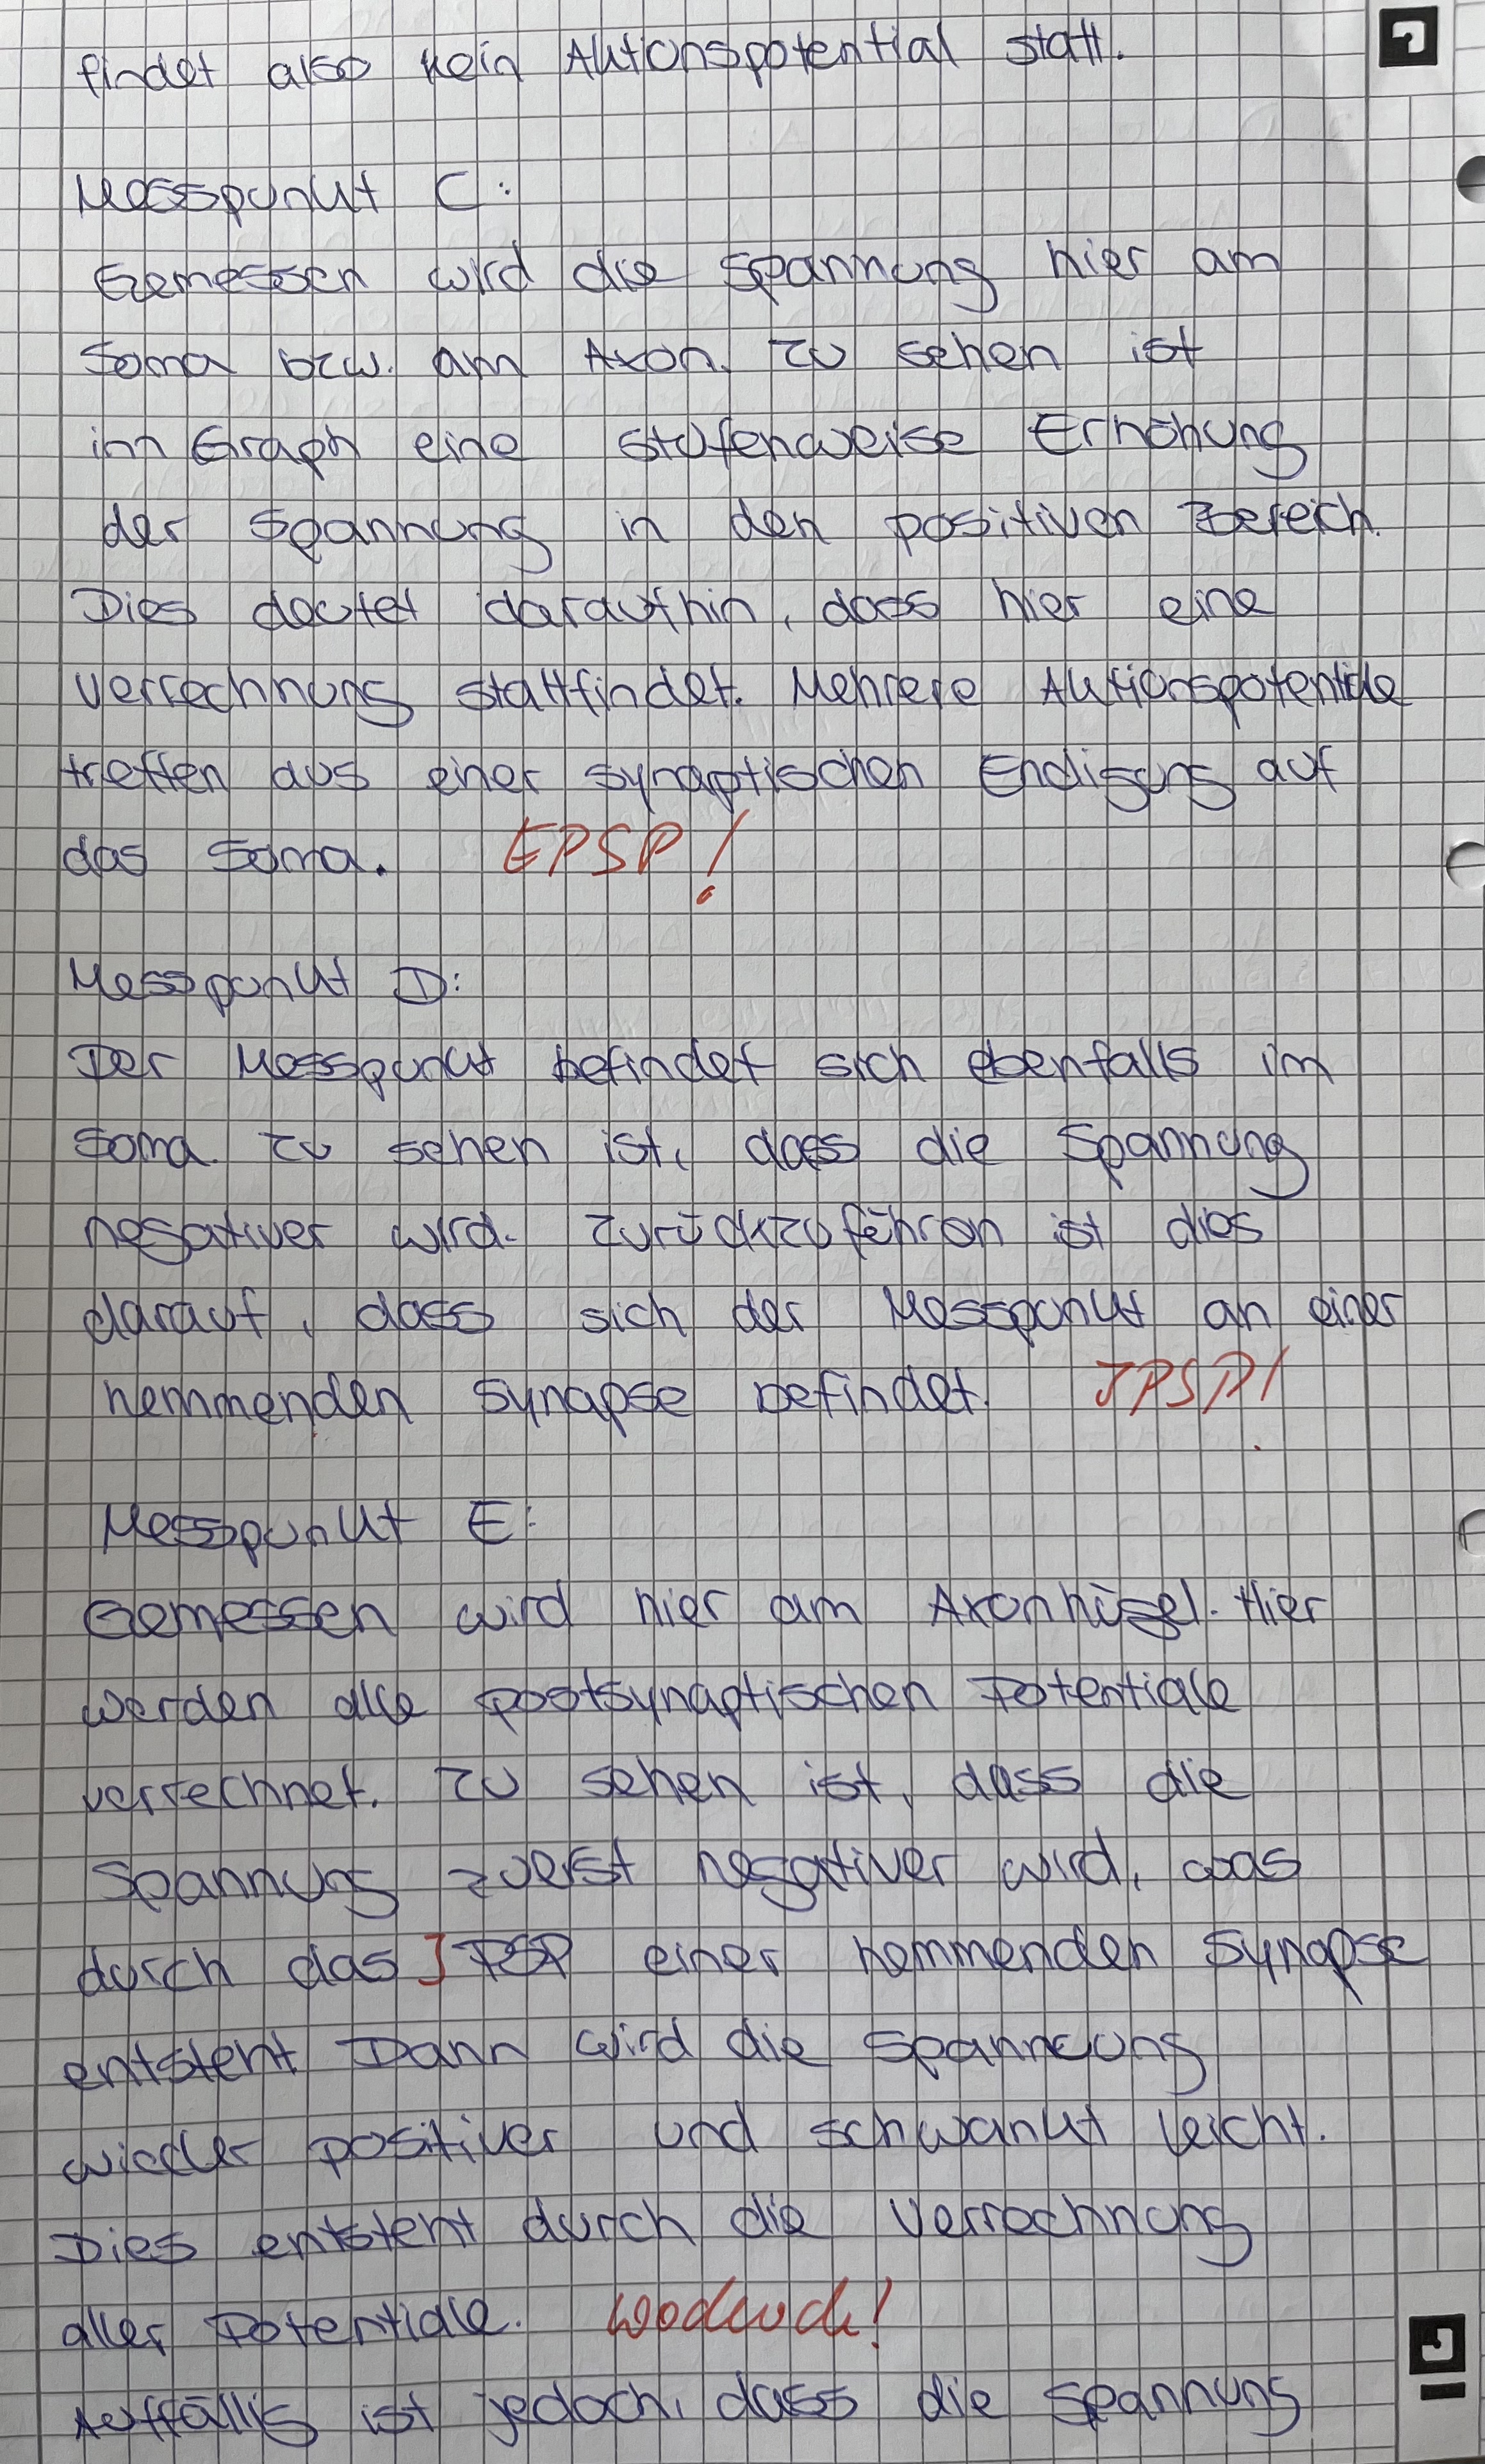 findet also kein Aktionspotential statt.
Messpunkt C:
Gemessen wird die Spannung hier am
Soma bzw. am Axon. Zu sehen ist
im Graph eine stufenweise Erhöhung
der Spannung in den positiven Bereich.
Dies deutet daraufhin, dass hier eine
Verrechnung stattfindet. Mehrere Aktionspotentiale
treffen aus einer synaptischen Endigung auf
das Soma. EPSP!
Messpunkt D:
Der Messpunkt befindet sich ebenfalls im
Soma. Zu sehen ist, dass die Spannung
negativer wird. Zurückzuführen ist dies
darauf, dass sich der Messpunkt an einer
hemmenden Synapse befindet. IPSP!
Messpunkt E:
Gemessen wird hier am Axonhügel. Hier
werden alle postsynaptischen Potentiale
verrechnet. Zu sehen ist, dass die
Spannung zuerst negativer wird, was
durch das IPSP einer hemmenden Synapse
entsteht Dann wird die Spannung
wieder positiver und schwankt leicht.
Dies entsteht durch die Verrechnung
aller Potentiale.
Auffällig ist jedoch, dass die Spannung